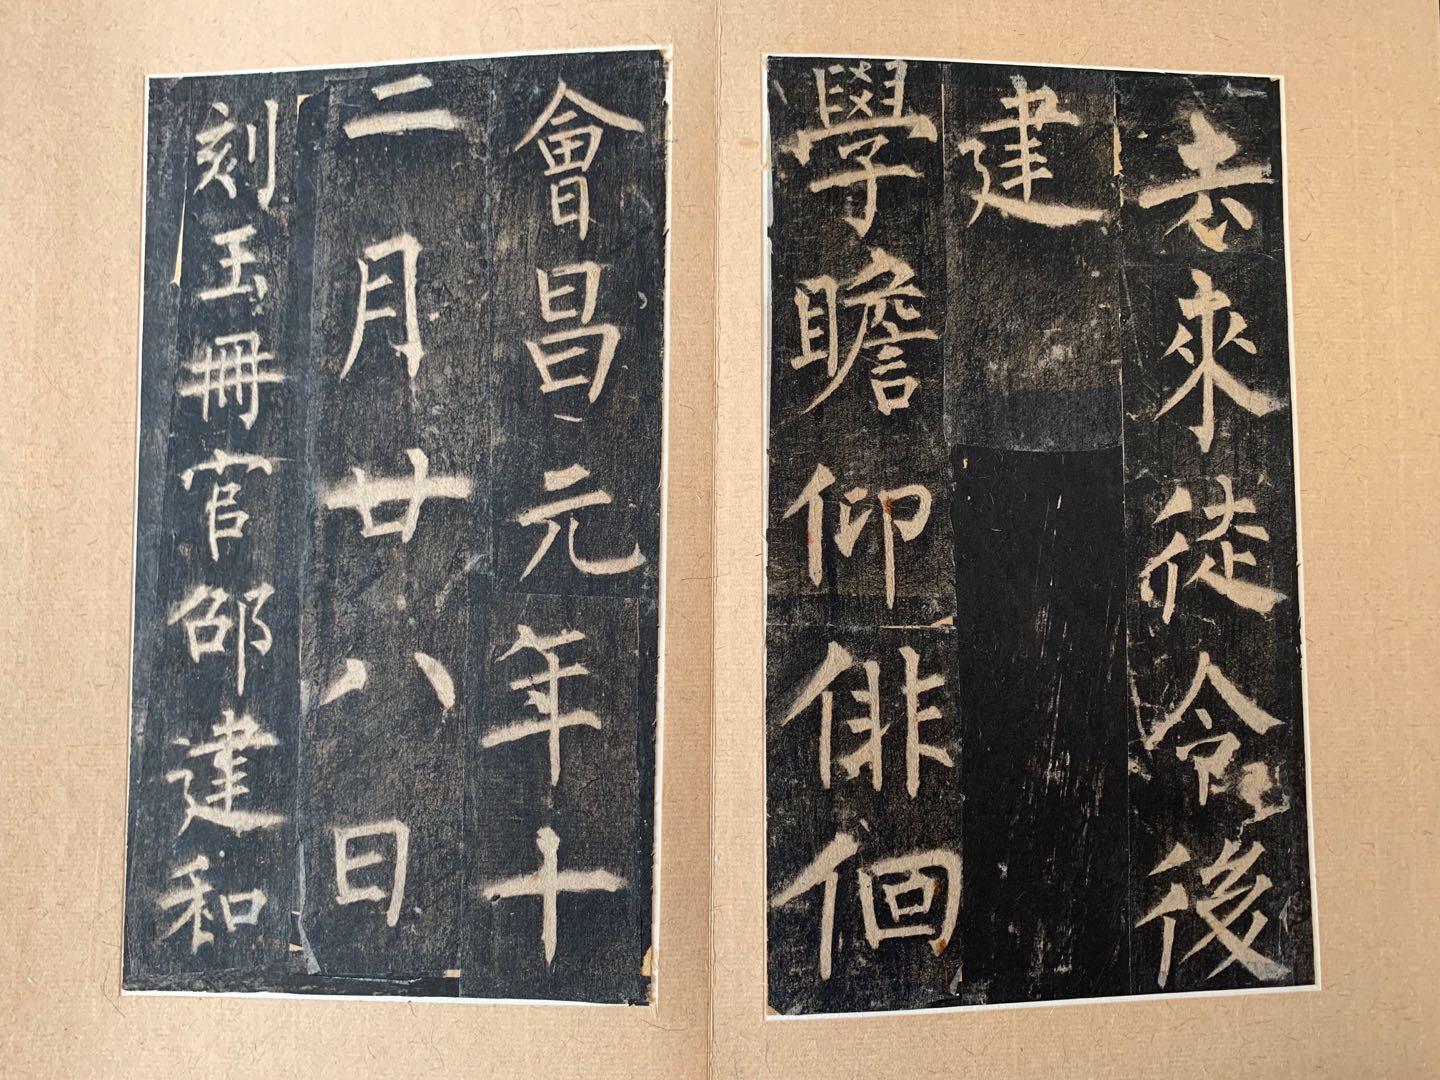 去來徒令後
建
學瞻仰俳佪
會昌元年十
二月廿八日
刻玉冊官邵建和